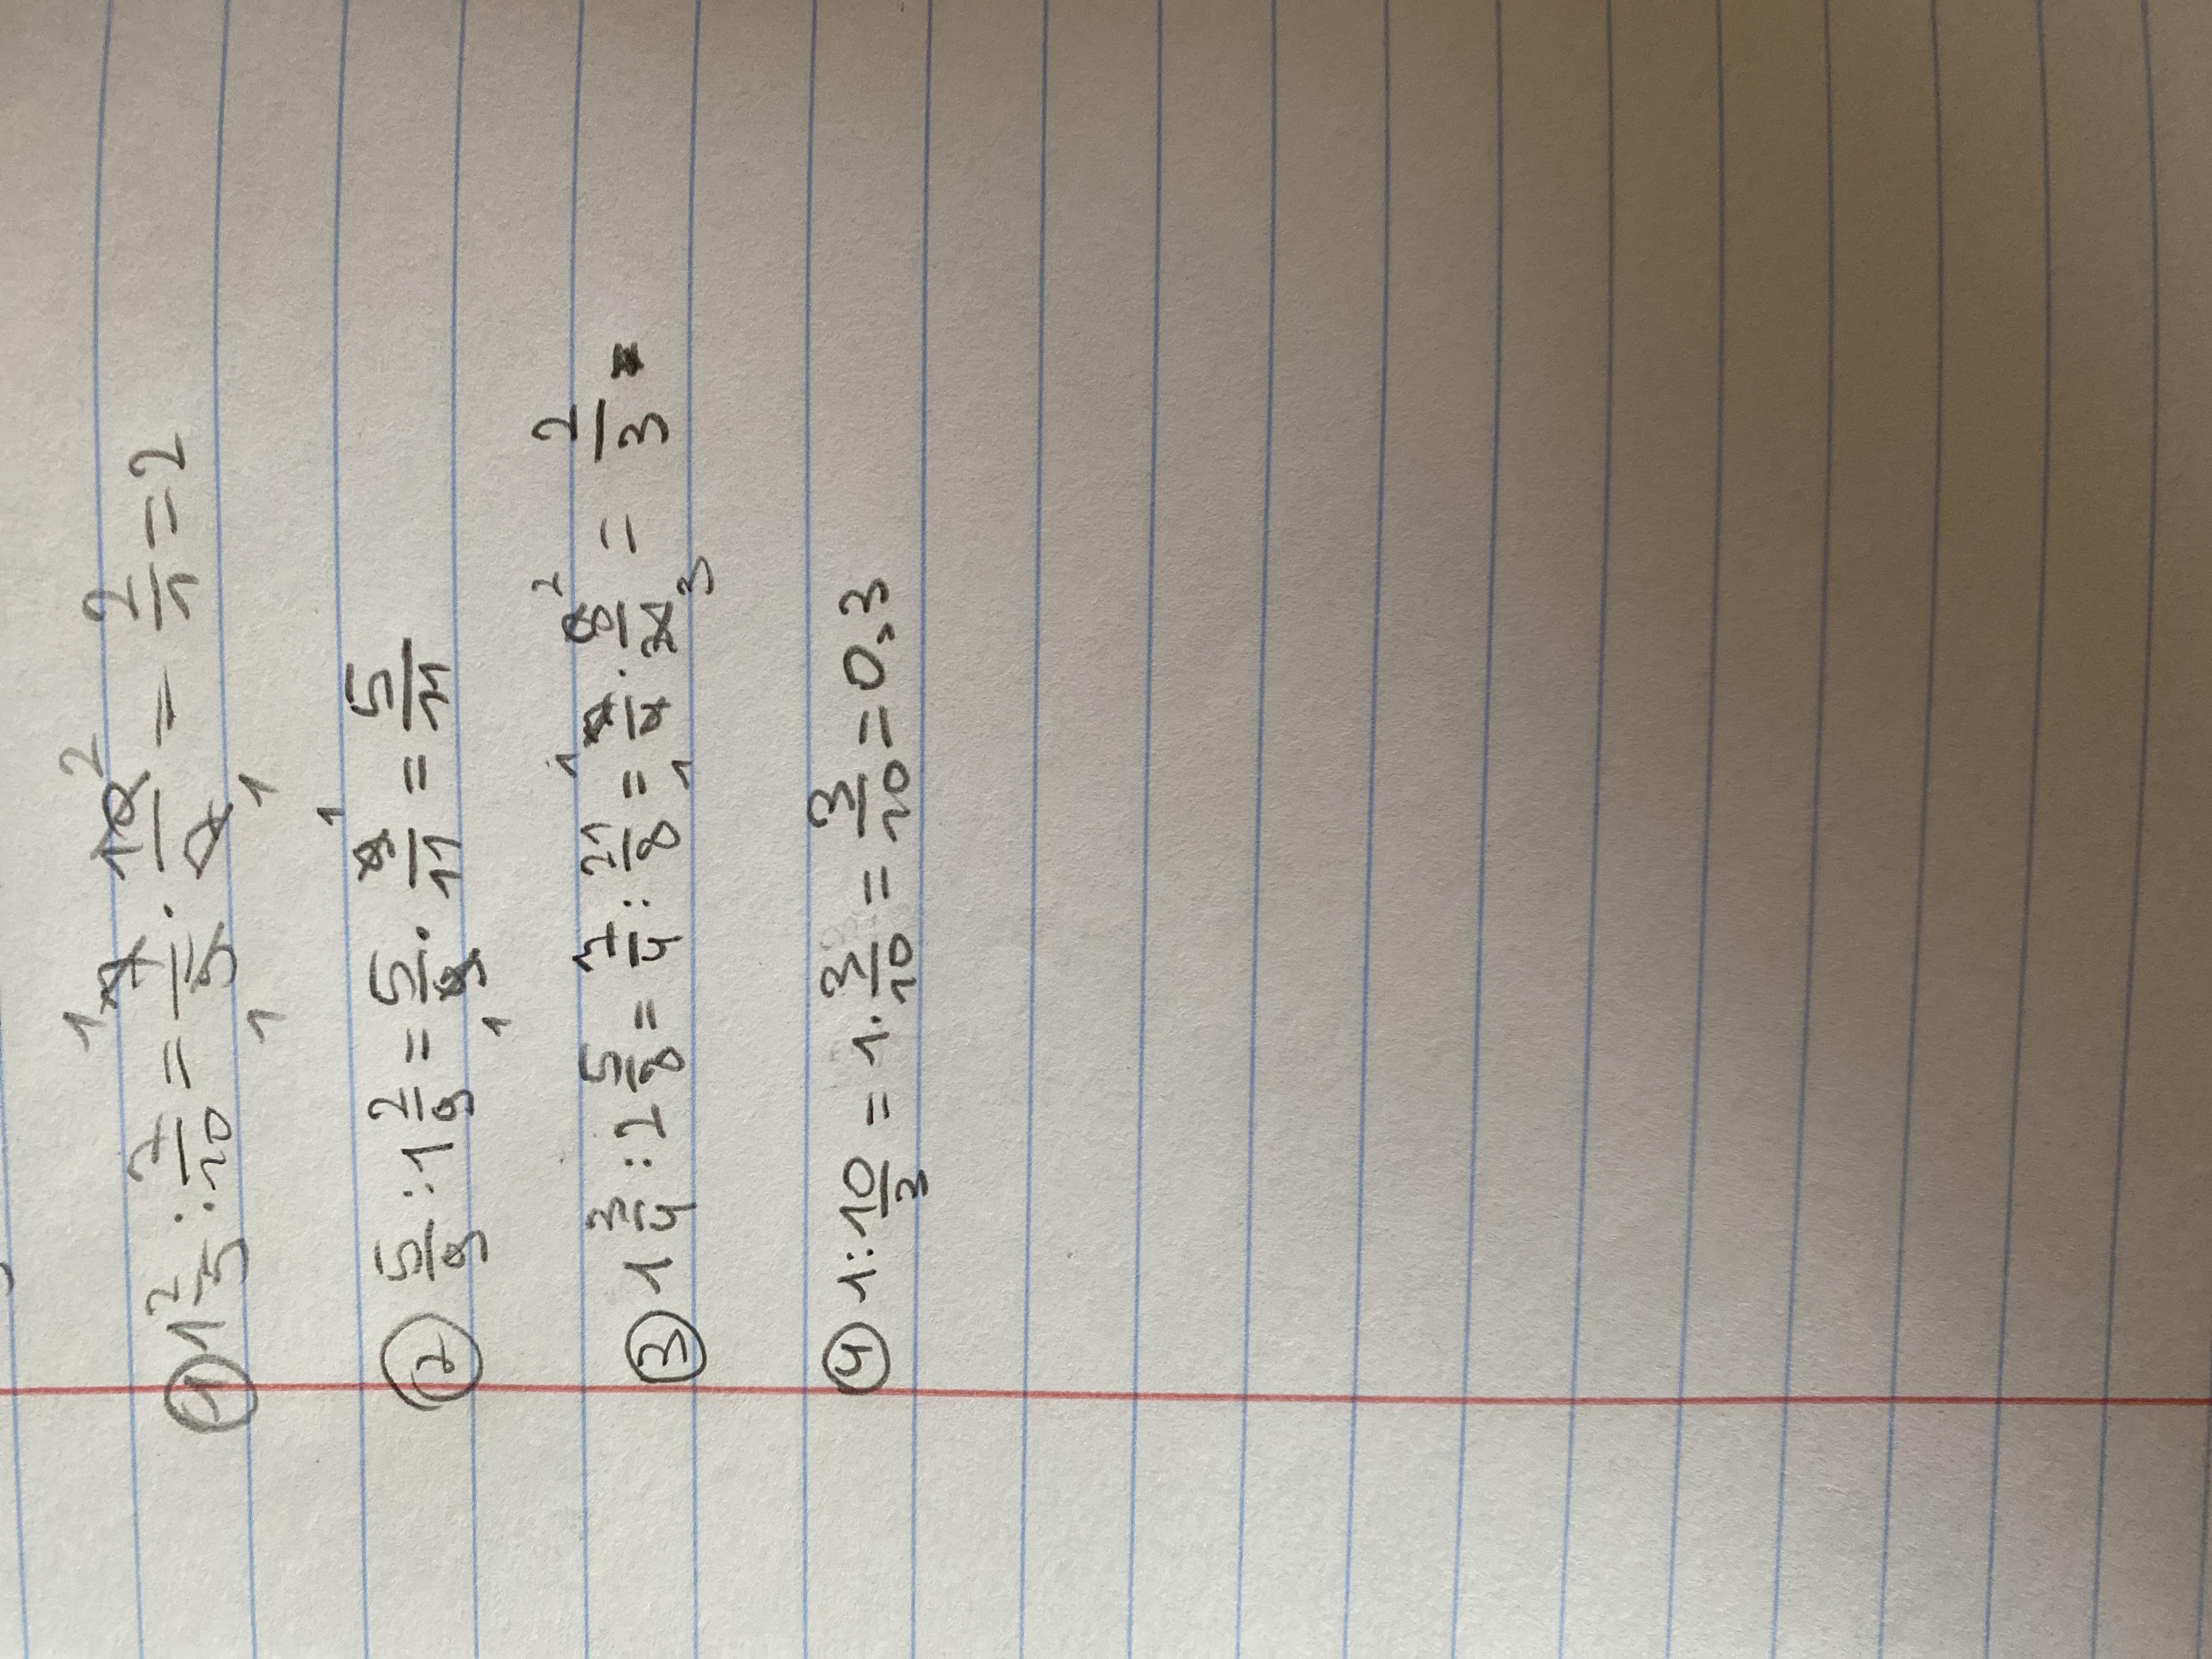 ① 1 2/5 : 7/10 = 7/5 · 10/7 = 2/1 = 2
② 5/9 : 1 2/9 = 5/9 · 9/11 = 5/11
③ 1 3/4 : 2 5/8 = 7/4 : 21/8 = 7/4 · 8/21 = 2/3
④ 1 : 10/3 = 1 · 3/10 = 3/10 = 0,3